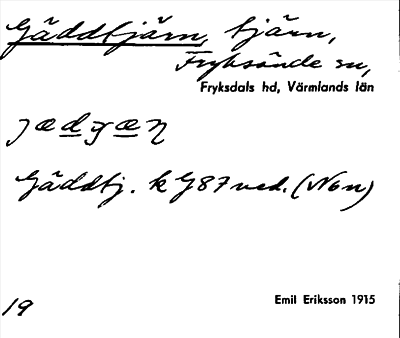 Gäddtjärn, tjärn,
Fryksände sn,
Fryksdals hd, Värmlands län
jædgæn
Gäddtj. k G87 ned. (Non)
Emil Eriksson 1915
19